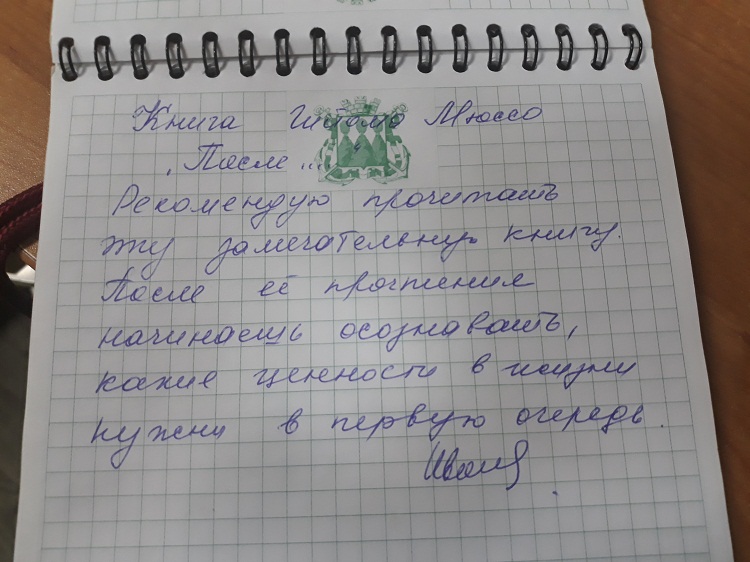 Книга Гийомо Мюссо
„После ...
Рекомендую прочитать
эту замечательную книгу.
После её прочтения
начинаешь осознавать,
какие ценности в жизни
нужны в первую очередь.